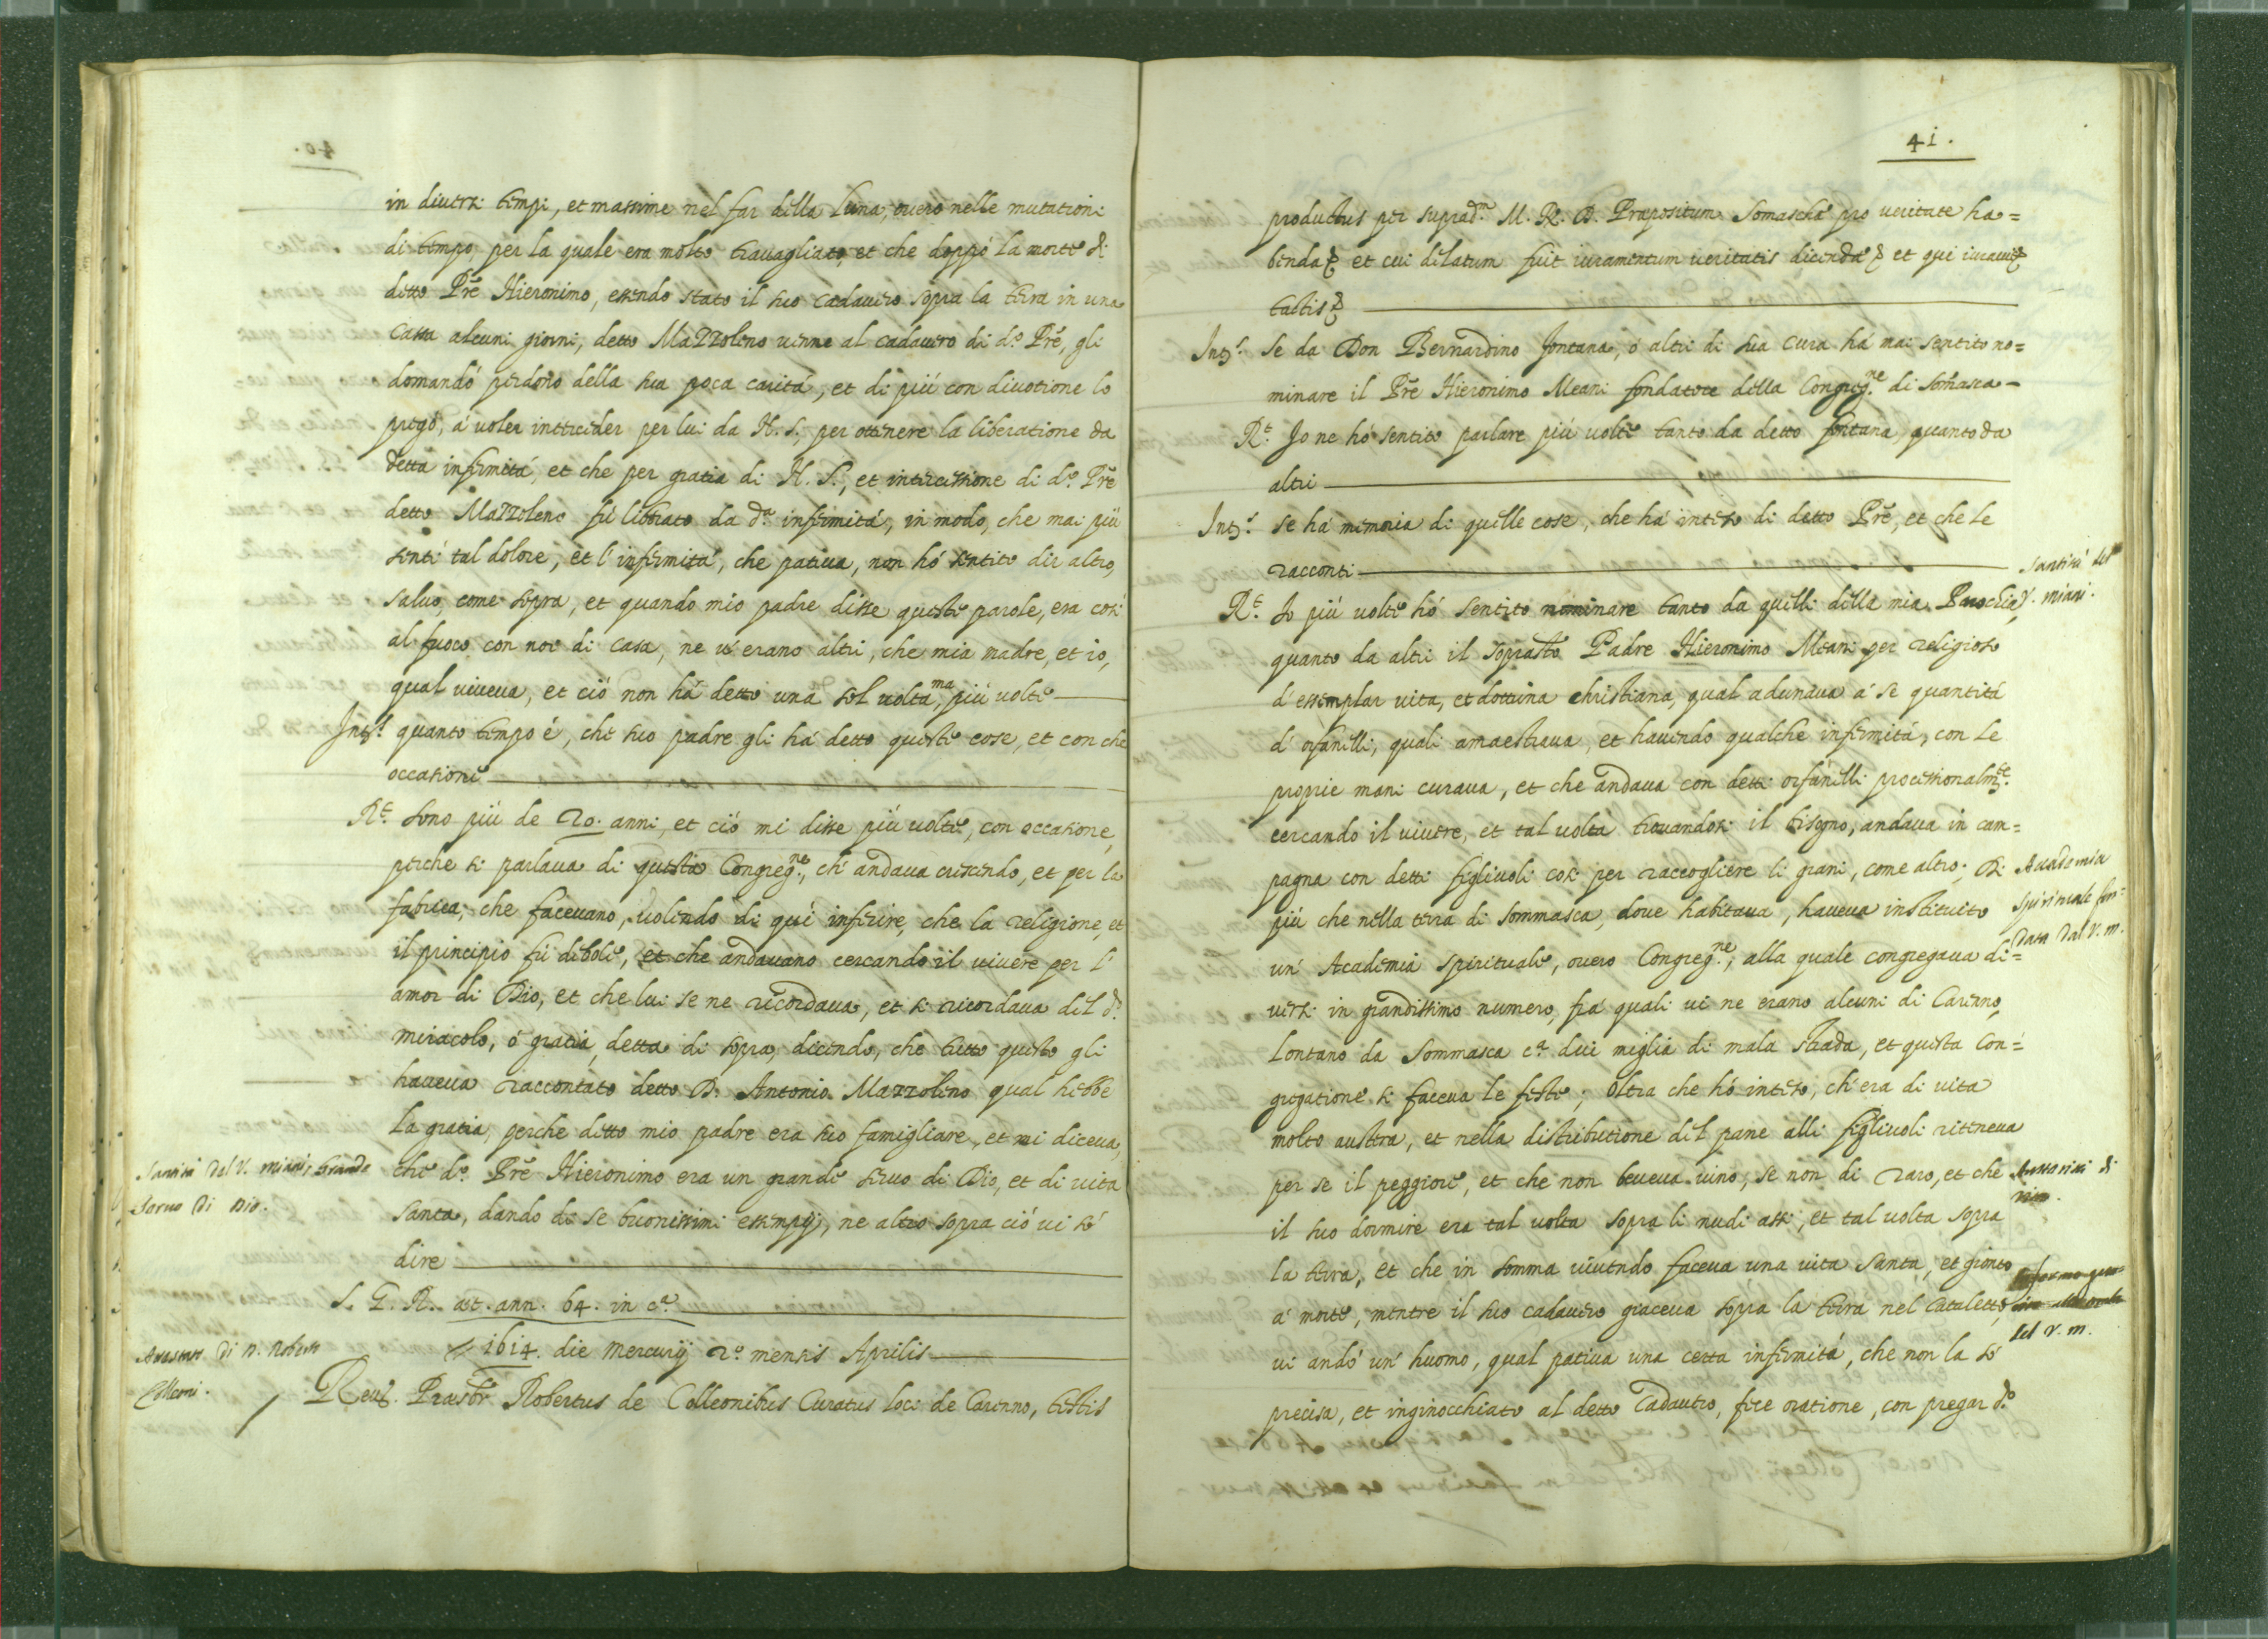 in diuersi tempi, et massime nel far della Luna, ouero nelle mutationi
di tempo, per la quale era molto trauagliato, et che doppó la morte di
detto Prē Hieronimo, essendo stato il suo cadauero sopra la terra in una
Cassa alcuni giorni, detto Mazzoleno uenne al cadauero di d.º Prē, gli
domandó perdono della sua poca caritá, et di piú con diuotione lo
pregó, á uoler interceder per lui da N. S. per ottenere la liberatione da
detta infermitá, et che per gratia di N. S., et intercessione di d.º Prē
detto Mazzoleno fú liberato da d.ª infermitá, in modo, che mai piú
sentí tal dolore, et l'infermitá, che patiua, non hó sentito dir altro,
saluo, come sopra, et quando mio padre disse queste parole, era cosí
al fuoco con noi di casa, ne u'erano altri, che mia madre, et io,
qual uiueua, et ció non há detto una sol uolta, ma piú uolte
Int.s quanto tempo é, che suo padre gli há detto queste cose, et con che
occasione
R.t Sono piú de 20. anni, et ció mi disse piú uolte, con occasione,
perche si parlaua di questa Congreg.ne, ch'andaua crescendo, et per la
fabrica, che faceuano, uolendo di quí inferire, che la religione, et
il principio fú debole, et che andauano cercando il uiuere per l'
amor di Dio, et che lui se ne ricordaua, et si ricordaua del d.º
miracolo, ó gratia, detta di sopra, dicendo, che tutto questo gli
haueua raccontato detto D. Antonio Mazzoleno qual hebbe
la gratia, perche detto mio padre era suo famigliare, et mi diceua,
Santitá del V. Miani, Grande
che d.º Prē Hieronimo era un grande seruo di Dio, et di uita
Seruo di Dio.
santa, dando de se buonissimi essempij, ne altro sopra ció ui só
dire
S. G. R. æt. ann. 64. in c.ª
Attestat. di D. Robert.
1614. die Mercurij 2.º mensis Aprilis
Colleoni.
Reu. Præsbr̄ Robertus de Colleonibus Curatus loci de Carenno, testis
41.
productus per suprad.m M. R. D. Præpositum Somaschæ pro ueritate ha=
benda et cui delatum fuit iuramentum ueritatis dicendæ et qui iurauit
tactis
Int.s Se da Don Bernardino Fontana, ó altri di sua cura há mai sentito no=
minare il Prē Hieronimo Meani fondatore della Congreg.ne di Somasca
R.t Io ne hó sentito parlare piú uolte tanto da detto Fontana, quanto da
altri
Int.s se há memoria di quelle cose, che há inteso di detto Prē, et che le
racconti
Santitá del
R.t Io piú uolte hó sentito nominare tanto da quelli della mia Parochia,
V. Miani.
quanto da altri il soprad.to Padre Hieronimo Meani per religioso
d'essemplar uita, et dottrina christiana, qual adunaua á se quantitá
d'orfanelli, quali amaestraua, et hauendo qualche infermitá, con le
proprie mani curaua, et che andaua con detti orfanelli processionalm.te
cercando il uiuere, et tal uolta trouandosi il bisogno, andaua in cam=
pagna con detti figliuoli cosí per raccogliere li grani, come altro; Di
Academia
piú che nella terra di Sommasca, doue habitaua, haueua instituito
spirituale fon=
data dal V. M.
un' Academia spirituale, ouero Congreg.ne, alla quale congregaua di=
uersi in grandissimo numero, frá quali ui ne erano alcuni di Carenno,
lontano da Sommasca c.ª duei miglia di mala strada, et questa Con=
gregatione si faceua le feste; Oltra che hó inteso, ch'era di uita
molto austera, et nella distributione del pane alli figliuoli riteneua
per se il peggiore, et che non beueua uino, se non di raro, et che
il suo dormire era tal uolta sopra li nudi assi, et tal uolta sopra
la terra, et che in somma uiuendo faceua una uita santa, et gionto
á morte, mentre il suo cadauero giaceua sopra la terra nel Cataletto,
del V. M.
ui andó un' huomo, qual patiua una certa infermitá, che non la só
precisa, et inginocchiato al detto Cadauero, fece oratione, con pregar d.º